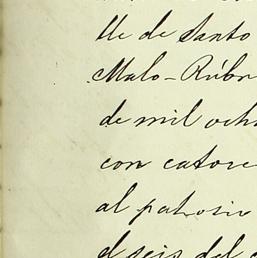 lle de Santo
Malo-Rúbr
de mil och
con catorce
al patroci
el seis del